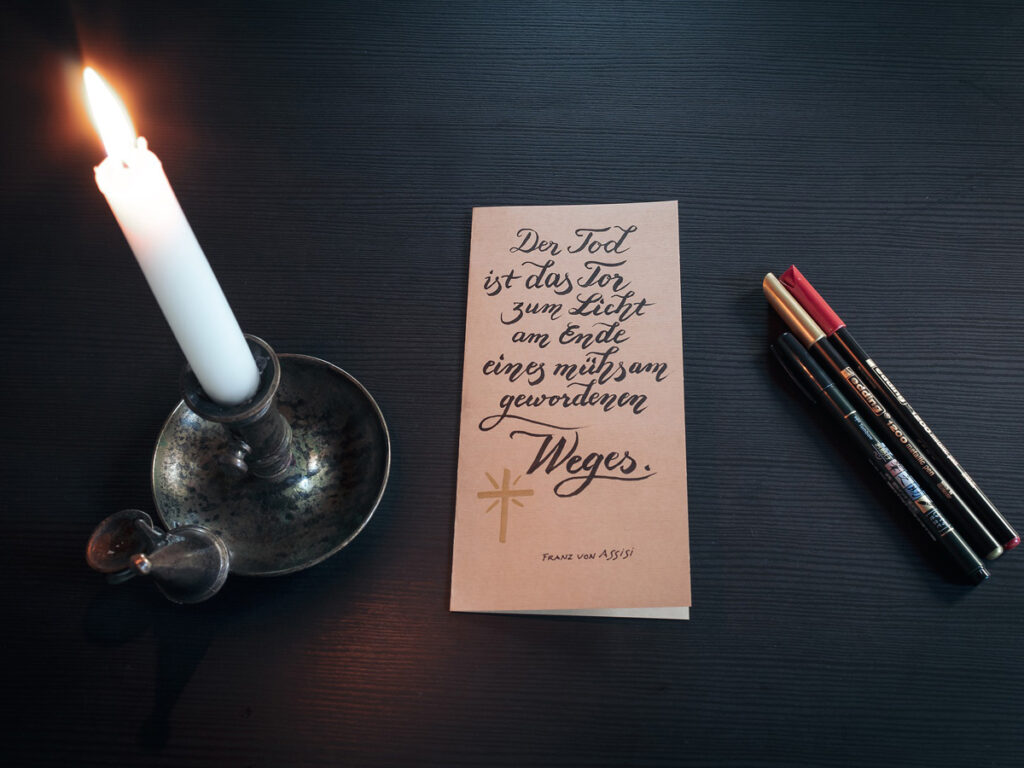 Der Tod
ist das Tor
zum Licht
am Ende
eines mühsam
gewordenen
Weges.
FRANZ VON ASSISI
edding
1200